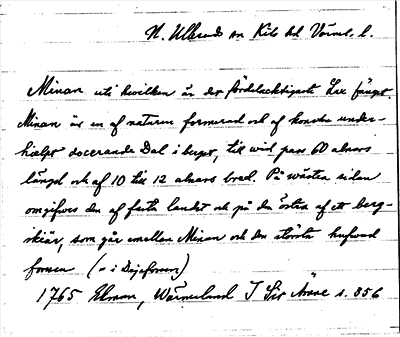 N. Ullerud sn Kils hd Värml. l.
Minan uti hvilken är det fördelacktigaste Lax fänget.
Minan är en af naturen formerad och af konsten under-
hielpt docerande Dal i berget, till wid pass 60 alnars
längd och af 10 till 12 alnars bred. På wästra sidan
omgifwes den af fasta landet och på den östra af ett berg-
skiär, som går emellan Minan och den största hufwud
forsen (= i Dejeforsen)
1765 Ekman, Wärmeland I Sit Ärane s. 356